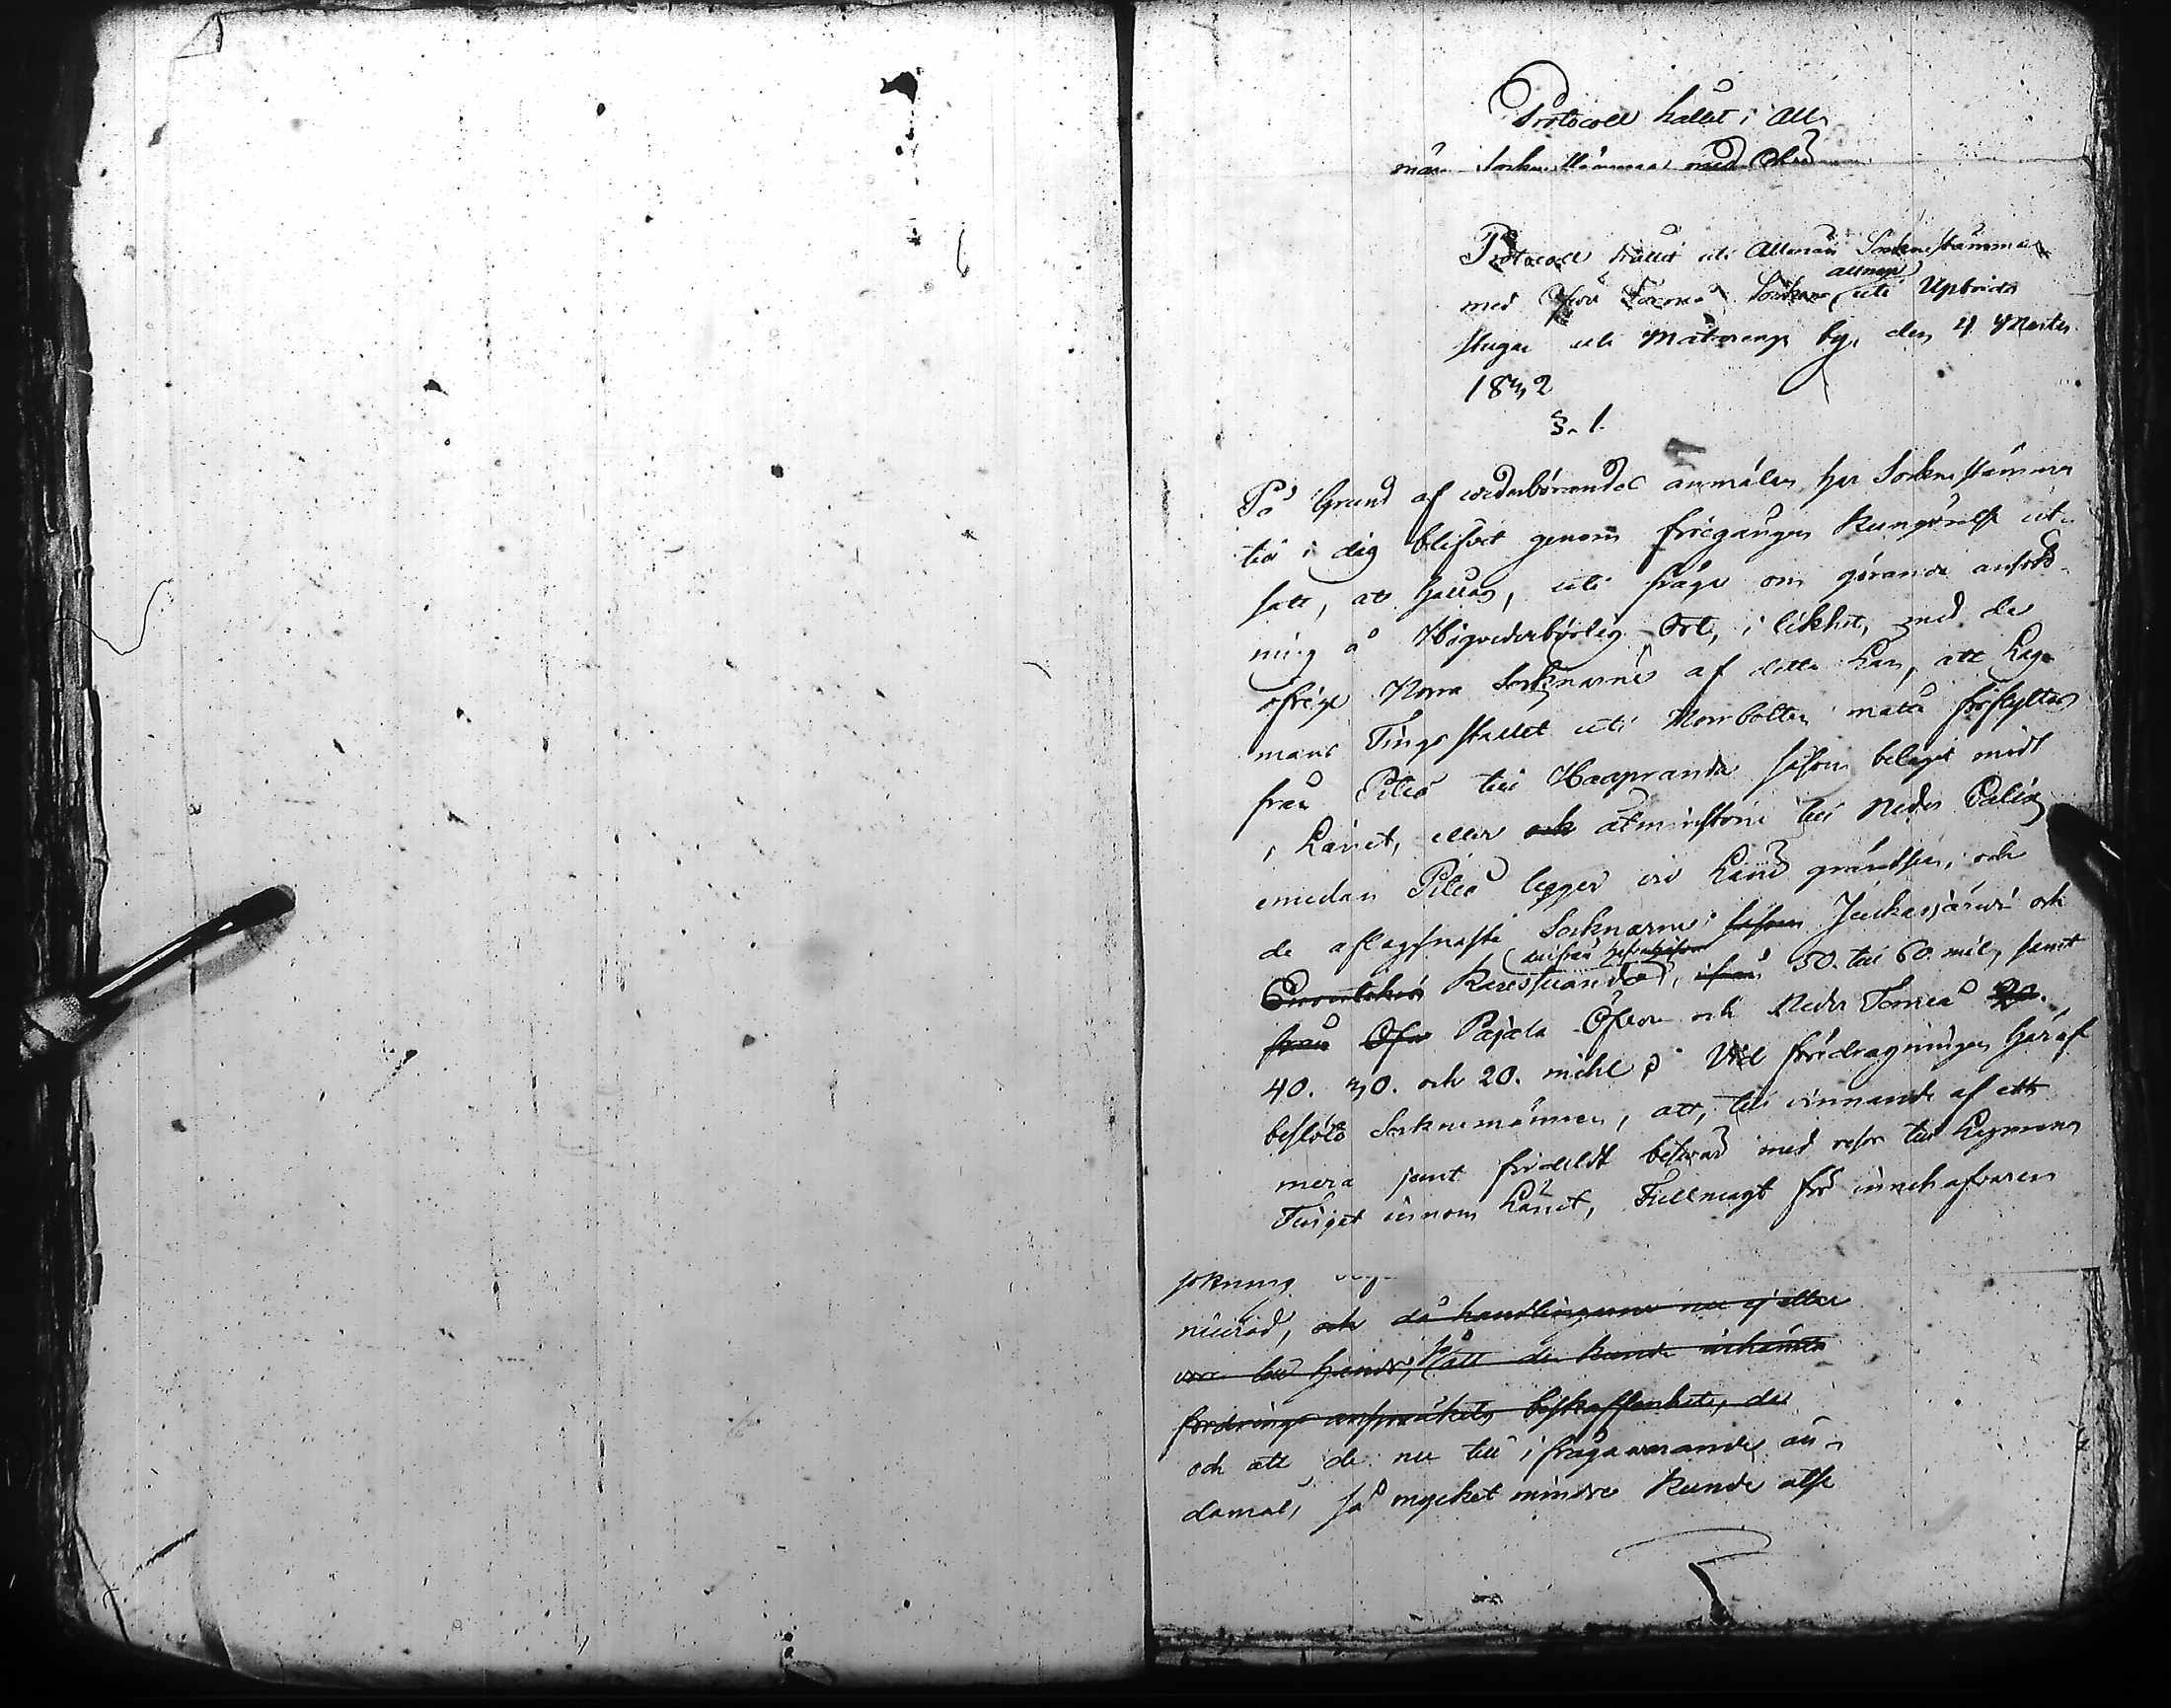 Protocoll hållit i All
män Sockenstämma med
Protocoll hållit uti Allmän Sockenstämma
med Öfver Torneå Socken allmoge uti Upbörds
stugan uti Matarengi by, den 4 Martii
1832
§. 1.
På Grund af wederbörandes anmälan har Sockenstämma
till i dag blifvit genom föregången kungörelse ut-
satt, at hållas, uti fråga om görande ansök-
ning å Högvederbörlig Ort, i likhet, med de
öfrige Norra Socknarnes af detta Län, att Lag-
mans Tings stället uti Norrbotten måtte förflyttas
från Piteå till Haapranda såsom beläget midt
i Länet, eller och åtminstone till Neder Calix
emedan Piteå ligger vid Läns gräntsen, och
de aflägsnaste Socknarne såsom Juckasjärvi och
Enontekis Karesuando, ifrån 50. till 60. mil, samt
från Öfver Pajala Öfver och Neder Torneå
40. 30. och 20. mihl. Vid föredragningen häraf
beslöto Sockenmännen, att, till vinnande af ett
mera jemt fördeldt besvär med resor till Lagmans
Tinget innom Länet, Fullmagt för innehafvaren
sökning
nuerad, och då handlingarne nu ej eller
voro till hands, så att de kunde inhämta
fordrings anspråkets beskaffenhet, de
och att de nu till ifrågavarande än-
damål, så mycket mindre kunde